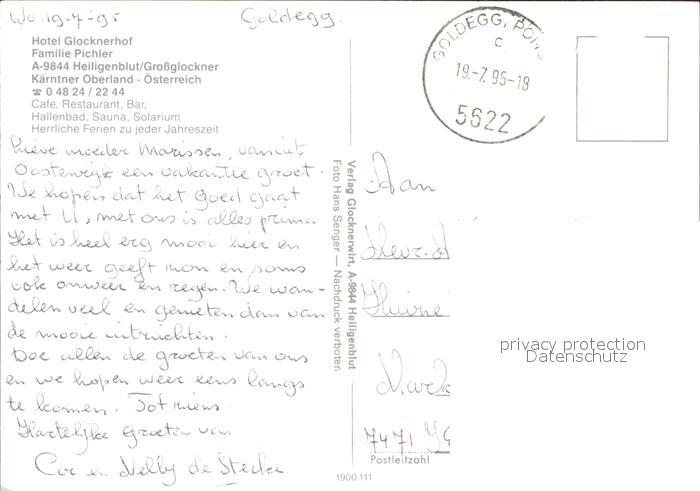 Wo. 19-7-95 Goldegg.
Hotel Glocknerhof
Familie Pichler
A-9844 Heiligenblut/Großglockner
Kärntner Oberland - Österreich
☎ 0 48 24 / 22 44
Cafe, Restaurant, Bar,
Hallenbad, Sauna, Solarium
Herrliche Ferien zu jeder Jahreszeit
Lieve moeder Marissen, vanuit
Oostenrijk een vakantie groet.
We hopen dat het goed gaat
met U, met ons is alles prima
Het is heel erg mooi hier en
het weer geeft zon en soms
ook onweer en regen. We wan-
delen veel en genieten dan van
de mooie uitzichten.
Doe allen de groeten van ons
en we hopen weer eens langs
te komen. Tot ziens
Hartelijke groeten van
Cor en Nelly de
Verlag Glocknerwirt, A-9844 Heiligenblut
Foto Hans Senger — Nachdruck verboten
GOLDEGG, PONG
c
19.-7.95-18
5622
Aan
Mevr.
7471
Postleitzahl
1900.111
privacy protection
Datenschutz